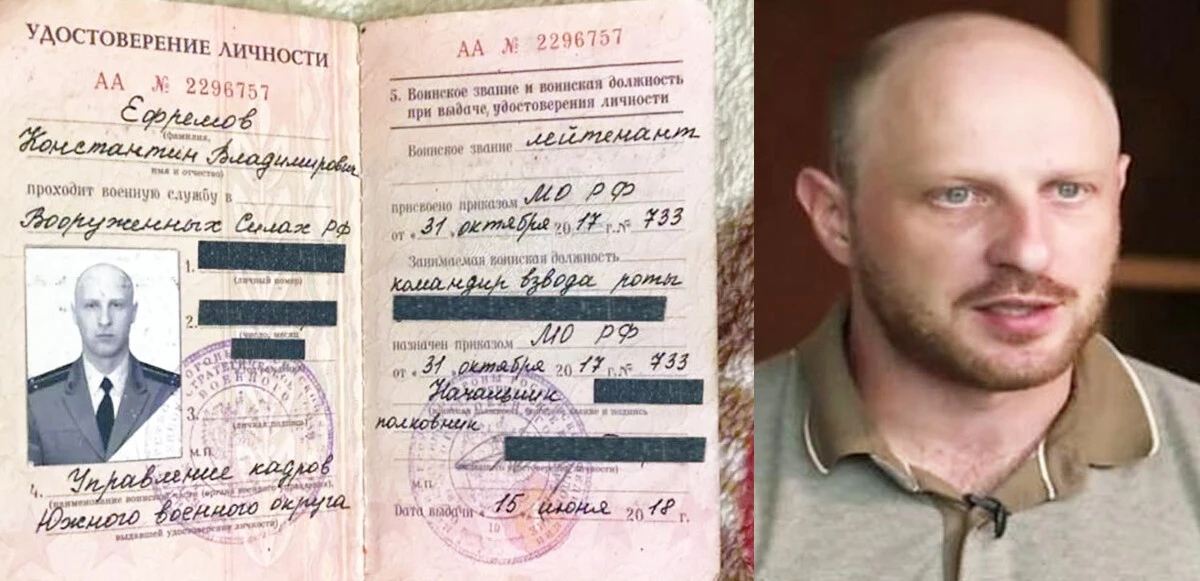 УДОСТОВЕРЕНИЕ ЛИЧНОСТИ
АА № 2296757
Ефремов
(фамилия,
Константин Владимирович
имя и отчество)
проходит военную службу в
Вооруженных Силах РФ
1.
(личный номер)
2.
(число, месяц
3.
(личная подпись)
М.П.
4. Управление кадров
(наименование воинской части (органа военного управления),
Южного военного округа
выдавшей удостоверение личности)
АА № 2296757
5. Воинское звание и воинская должность
при выдаче, удостоверения личности
Воинское звание лейтенант
присвоено приказом МО РФ
от «31» октября 2017 г. № 733
Занимаемая воинская должность
командир взвода роты
назначен приказом МО РФ
от «31» октября 2017 г. № 733
Начальник
звание и подпись
полковник
удостоверение личности)
М.П.
Дата выдачи «15» июня 2018 г.